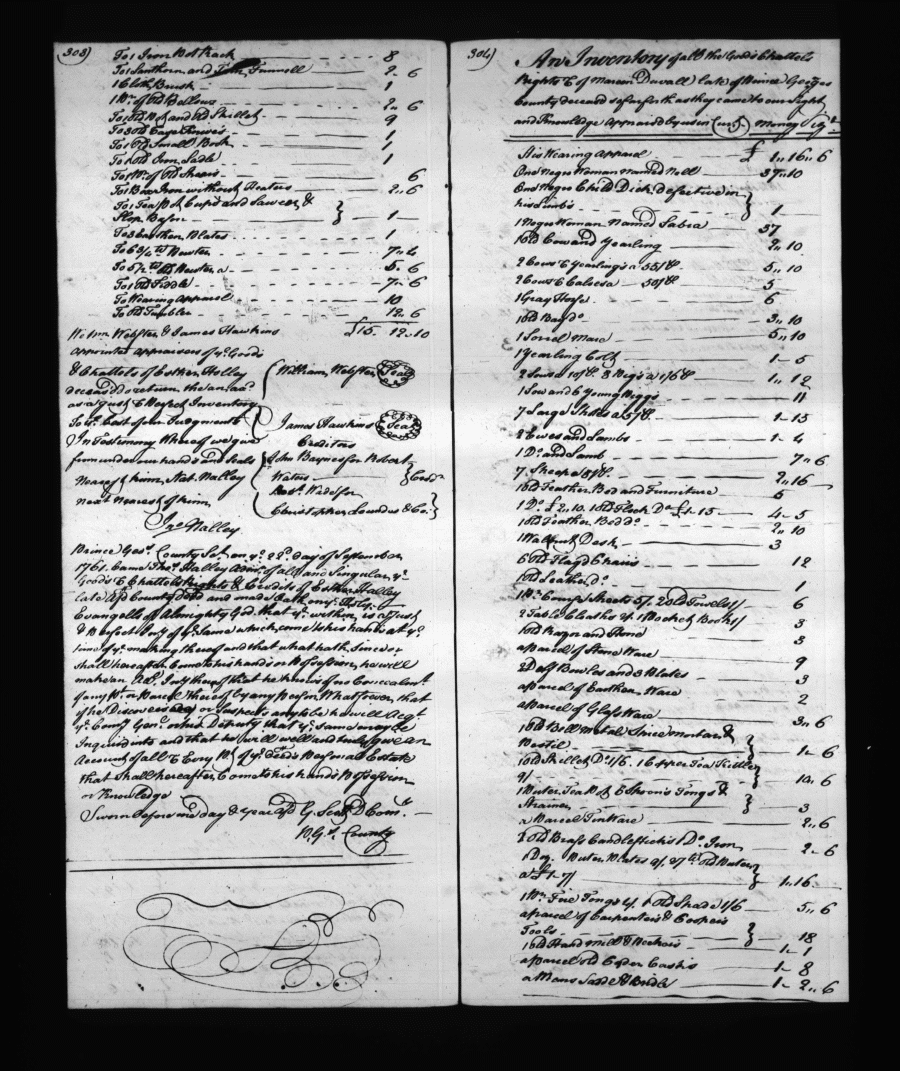 303)
To 1 Iron Pot Rack - 8
To 1 Lanthorn and Funnell 2,, 6
1 Cloth Brush 1
1 Pr. of Old Bellows 2,, 6
To 1 Old Pot and Old Skillet 9
1
To 1 Old Small Book 1
To 1 Old Iron Ladle 1
To 1 Pr. of Old Shears 6
To 1 Box Iron without Heaters 2,, 6
To 1 Tea Pot Cups and Sawcers &
Slop Bason } 1
To 3 Earthen Plates 1
To 6 3/4 lb Pewter 7,, 6
To 5 1/2 lb Old Pewter a 5,, 6
To 1 Old Fiddle 7,, 6
To Wearing Apparel 10
To Old Tumbler 12,, 6
£15. 12,, 10
We ton Webster & James Hawkins
appointed appraisers of ye. Goods
& Chattels of Esther Halley
deceased do return the
as a just & Perfect Inventory
To ye. best of our Judgments
In Testimony Whereof we give
from under our hands and Seals
Nearest of kin, Nat. Nalley
next nearest of kin
Jno. Nalley
William Webster Seal
James Hawkins Seal
Creditors
John Baynes for Robert
Waters
Robt. Wade for
Christopher Lowndes & Co. } Cred.
Prince Geos. County Sct. on ye. 22d. day of September
1761. Came Thos. Halley Admr. of all and Singular ye.
Goods & Chattels Rights & Credits of Esther Halley
late of sd County decd and made Oath on ye. Holy
Evangells of Almighty God, that ye. within is a Just
& Perfect Invy of ye. Same which came to his hands at ye.
time of ye. making thereof and that what hath Since or
shall hereafter Come to his hands or Possession, he will
make an Invy thereof that he knows of no Concealmt
of any Pt. or Parcel thereof by any Person Whatsoever, that
if he Discovers any or suspects any to be he will Acqt.
ye. Comy. Genl. or his Deputy that ye. same may be
Inquired into and that he will well and truly give an
Account of all & Every Pt. of ye. Decds Personal Estate
that shall hereafter Come to his hands Possession
or Knowledge
Sworn before me day & year afd. G. Scott D Comy.
P. Gs. County
304)
An Inventory of all the Goods Chattels
Rights & of Mareen Duvall late of Prince Georges
County deceased so far forth as they came to our Sight
and Knowledge appraised by us in Money
His Wearing Apparel £ 1,, 16,, 6
One Negro Woman Named Nell 37,, 10
One Negro Child Dick defective in
his Limbs } 1
1 Negro Woman Named Sabra 57
1 Old Cow and Yearling 2,, 10
2 Cows & Yearlings a 55/ 5,, 10
2 Cows & Calves a 50/ 5
1 Gray Horse 6
1 Old Bay do. 3,, 10
1 Sorrel Mare 5,, 10
1 Yearling Colt 1,, 5
2 Sows a 10/ 8 Pigs a 1/6 1,, 12
1 Sow and 6 Young Piggs 11
7 Large Shoats a 5/ 1,, 15
2 Ewes and Lambs 1,, 4
1 Do. and Lamb 7,, 6
7 Sheep a 8/ 2,, 16
1 Old Feather Bed and Furniture 6
1 Do. £2,, 10. 1 Old Flock Do. £1,, 15 4,, 5
1 Old Feather Bed do. 2,, 10
1 Walnut Desk 3
6 Old Flagd Chairs 12
1 Old Leather do. 1
1 Pr. Coarse Sheets 5/. 2 Old Towels 1/ 6
2 Table Cloths 2/ 1 Pocket Book 1/ 3
1 Old Razor and Hone 3
a Parcel of Stone Ware 9
2 Delf Bowles and 3 Plates 3
a Parcel of Earthen Ware 2
a Parcel of Glass Ware 3,, 6
1 Old Bell metal Spice mortar &
Pestil } 1,, 6
1 Old Skillet Do. 1/6. 1 Copper Tea Kittle
9/ } 10,, 6
1 Pewter Tea Pot & Spoons Tongs &
Strainer } 3
a Parcel Tin Ware 2,, 6
2 Old Brass Candlesticks 1 Do. Iron 2,, 6
1 Doz. Pewter Plates 9/. 27 lb Old Pewter
a £1,, 7/ } 1,, 16
1 Pr. Fire Tongs 4/. 1 Old Spade 1/6 5,, 6
a parcel of Carpenters & Coopers
Tools } 18
1 Old Hand Mill & 1,, 1
a Parcel old Cyder Casks 1,, 8
a Mans Saddle & Bridle 1,, 2,, 6